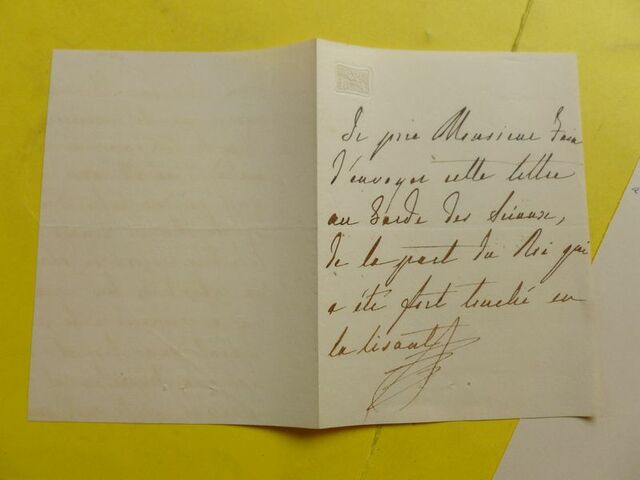 Je prie Monsieur Fain
d'envoyer cette lettre
au Garde des Sceaux,
de la part du Roi qui
a été fort touché en
la lisant